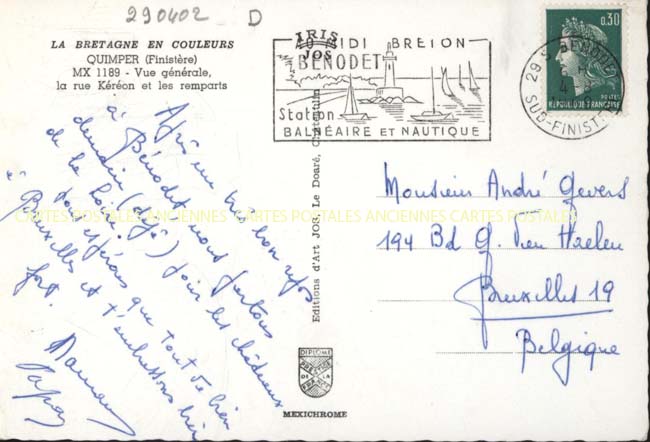 290402 D
LA BRETAGNE EN COULEURS
QUIMPER (Finistère)
MX 1189 - Vue générale,
la rue Kéréon et les remparts
IRIS
JOS
AU MIDI BRETON
BENODET
Station
BALNÉAIRE ET NAUTIQUE
29 S BENODET
4
SUD-FINIST
0,30
POSTES
REPUBLIQUE FRANÇAISE
Après un très bon repos
à Bénodet nous partons
demain (déjà) pour les châteaux
de la Loire.
J'espérons que tout va bien
à Bruxelles et t'embrassons bien
fort
Maman
Papa
Editions d'Art JOS, Le Doaré, Châteaulin
Monsieur André Gevers
194 Bd G. Van Haelen
Bruxelles 19
Belgique
CARTES POSTALES ANCIENNES CARTES POSTALES ANCIENNES CARTES POSTALES
DIPLOME
PRESTIGE
DE LA
FRANCE
MEXICHROME